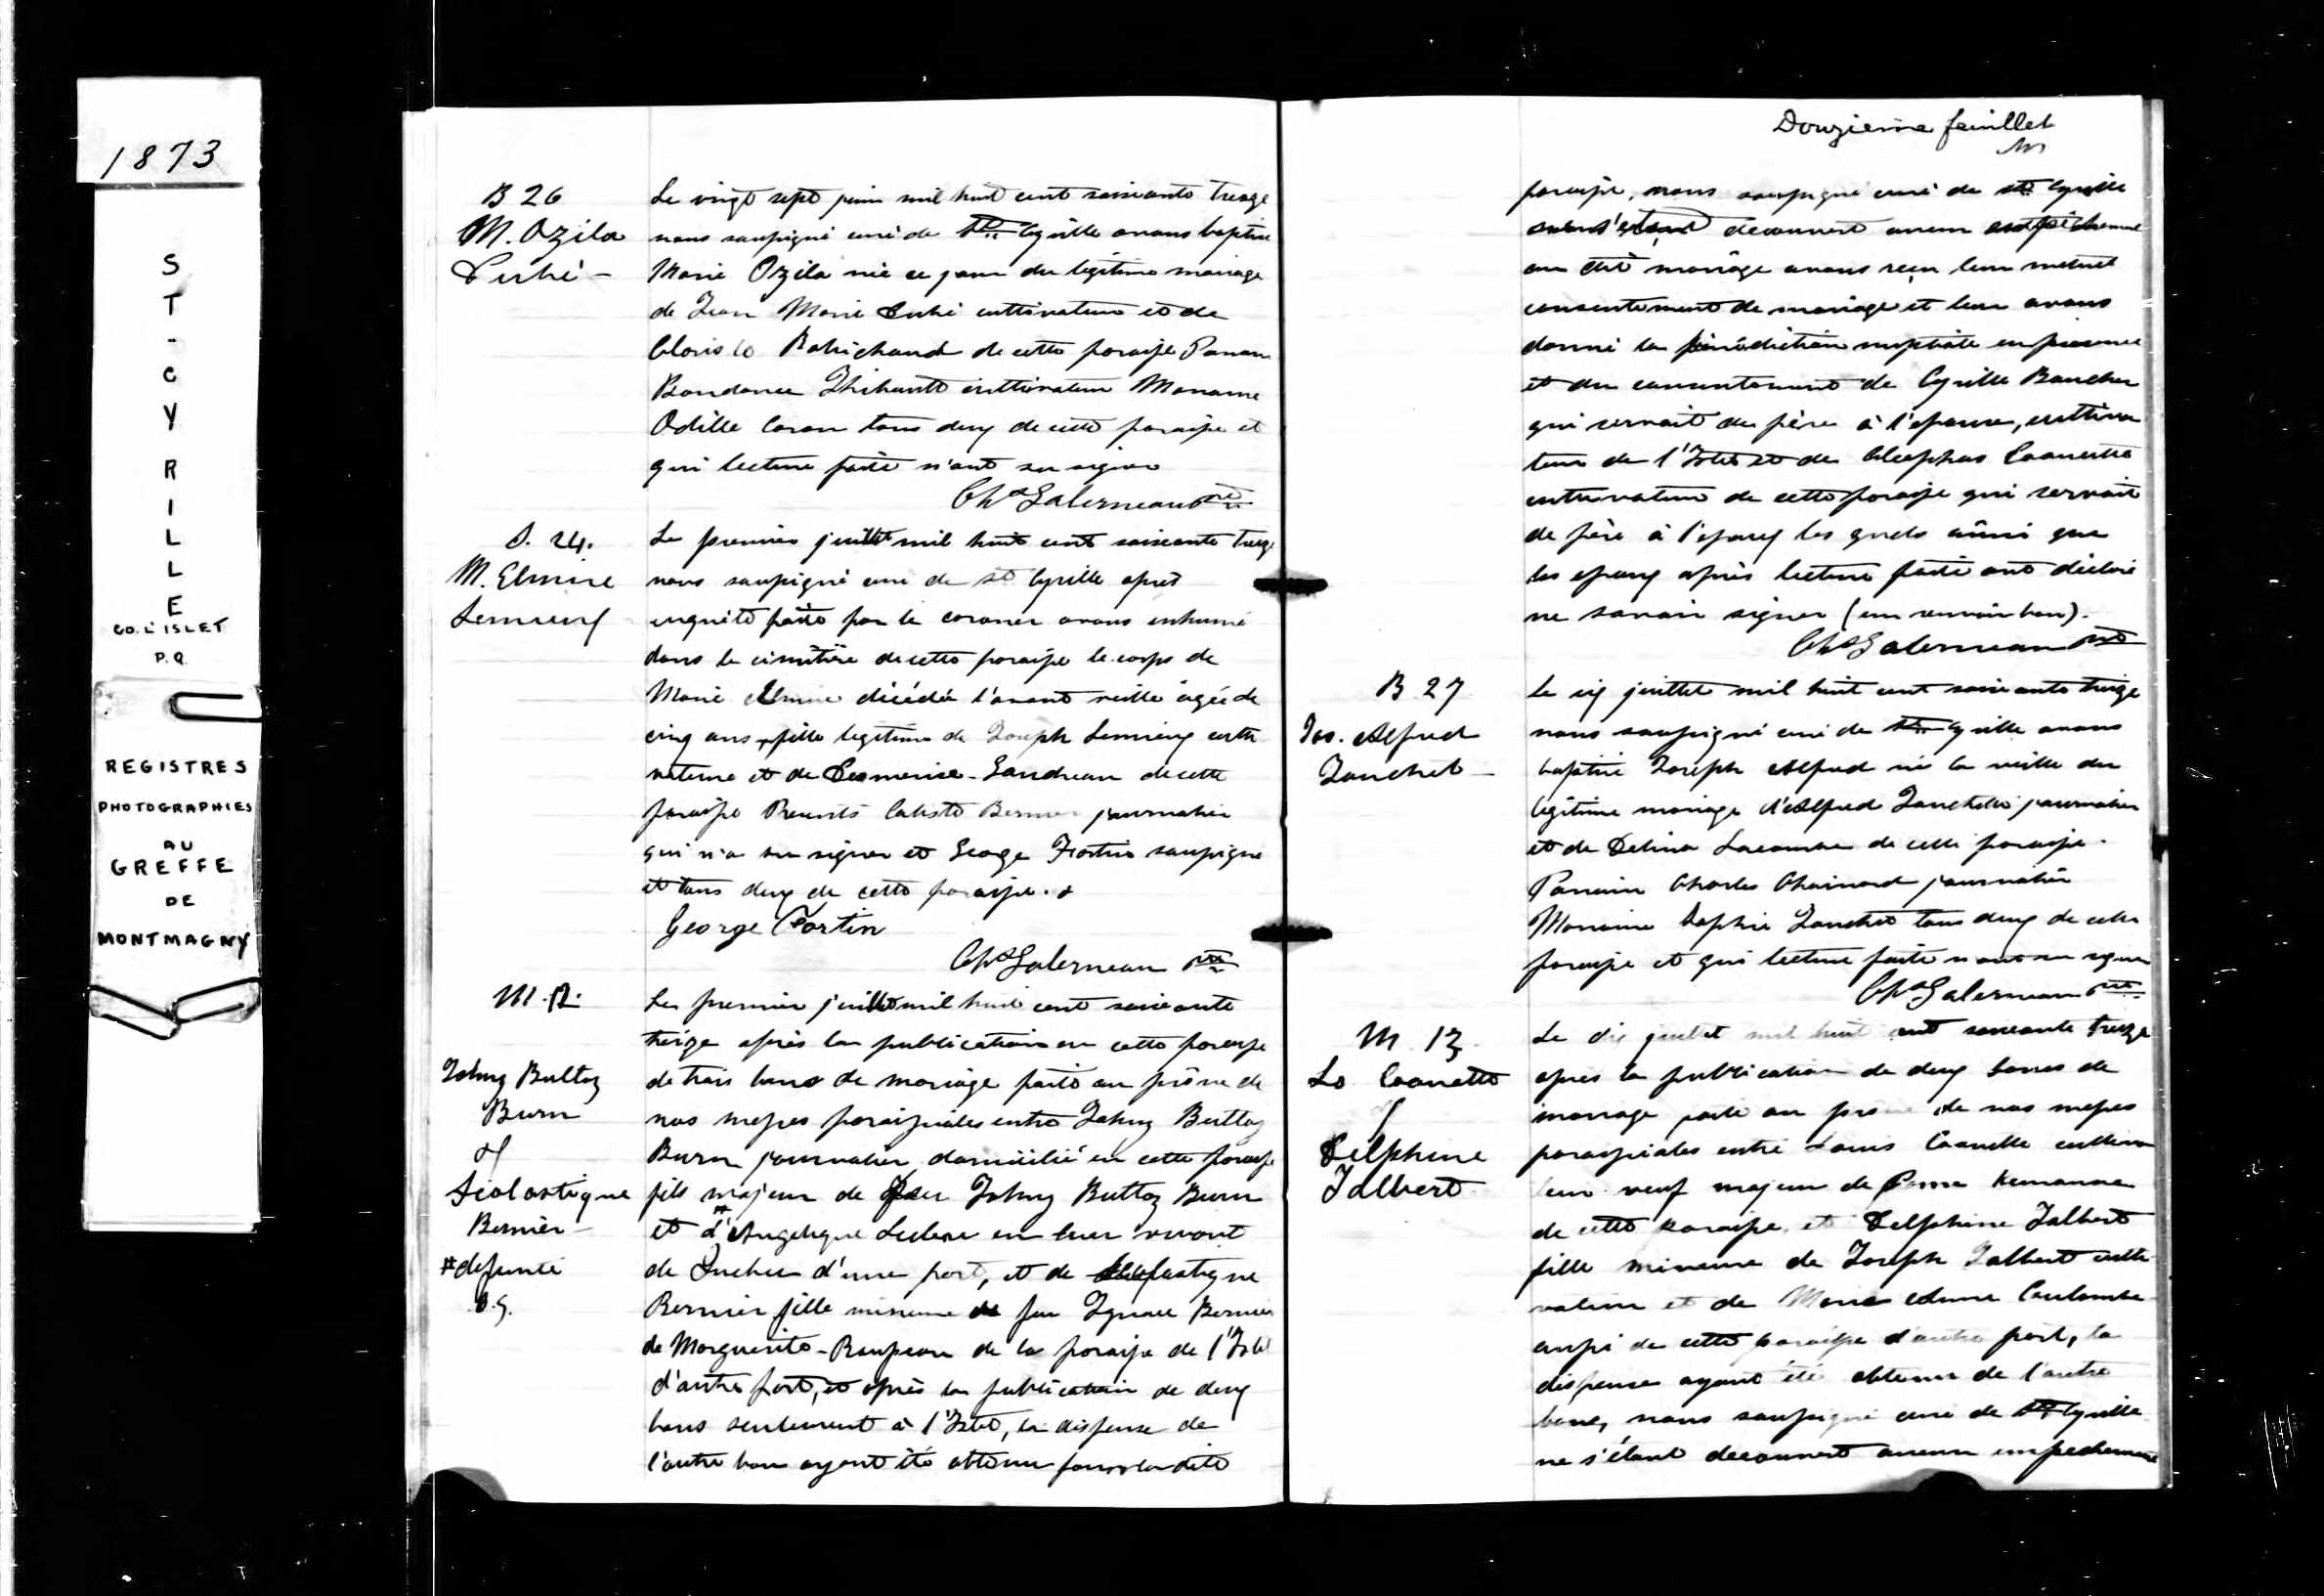 1873
ST-CYRILLE
CO. L'ISLET
P.Q.
REGISTRES
PHOTOGRAPHIES
AU
GREFFE
DE
MONTMAGNY
B 26
M. Ozila
Le vingt sept juin mil huit cent soixante treize
nous soussigné curé de St Cyrille avons baptisé
Marie Ozila née ce jour du légitime mariage
de Jean Marie cultivateur et de
Robichaud de cette paroisse Parrain
Thibault cultivateur Marraine
Odille Caron tous deux de cette paroisse et
qui lecture faite n'ont su signer
Chs Galerneau ptre
S. 24.
M. Elmire
Lemieux
Le premier juillet mil huit cent soixante treize
nous soussigné curé de St Cyrille après
enquête faite par le coroner avons inhumé
dans le cimetière de cette paroisse le corps de
Marie Elmire décédée l'avant veille âgée de
cinq ans, fille legitime de Joseph Lemieux culti
vateur et de Gaudreau de cette
paroisse Presents Calixte Bernier journalier
qui n'a su signer et George Fortin soussigné
et tous deux de cette paroisse.
George Fortin
Chs Galerneau ptre
M. 12.
Johny Buttoz
Burn
&
Scolastique
Bernier
#defunte
C.G.
Le premier juillet mil huit cent soixante
treize après la publication en cette paroisse
de trois bans de mariage faite au prône de
nos messes paroissiales entre Johny Buttoz
Burn journalier, domicilié en cette paroisse
fils majeur de feu Johny Buttoz Burn
et d'#Angelique Leclerc en leur vivant
de Quebec d'une part, et de Scholastique
Bernier fille mineure de feu Ignace Bernier
de Marguerite de la paroisse de l'Islet
d'autre part, et après la publication de deux
bans seulement à l'Islet, la dispense de
l'autre ban ayant été obtenu pour la dite
Douzieme feuillet
paroisse, nous soussigné curé de St Cyrille
découvert aucun empêchement
au dit mariage avons reçu leur mutuel
consentement de mariage et leur avons
donné la bénédiction nuptiale en présence
et du consentement de Cyrille Boucher
qui servait de père à l'épouse, cultiva
teur de l'Islet et de Cléophas Caouette
cultivateur de cette paroisse qui servait
de père à l'époux les quels ainsi que
les époux après lecture faite ont déclaré
ne savoir signer (un renvoi bon).
Chs Galerneau ptre
B 27
Jos. Alfred
Le six juillet mil huit cent soixante treize
nous soussigné curé de St Cyrille avons
baptisé Joseph Alfred né la veille du
légitime mariage d'Alfred journalier
et de Delina Lacombe de cette paroisse.
Parrain Charles Chouinard journalier
Marraine Sophie tous deux de cette
paroisse et qui lecture faite n'ont su signer
Chs Galerneau ptre
M 13
Ls Caouette
&
Delphine
Jalbert
Le dix juillet mil huit cent soixante treize
après la publication de deux bans de
mariage faite au prône de nos messes
paroissiales entre Louis Caouette cultiva
teur veuf majeur de
de cette paroisse et Delphine Jalbert
fille mineure de Joseph Jalbert culti
vateur et de Marie Coulombe
aussi de cette paroisse d'autre part, la
dispense ayant été obtenue de l'autre
banc, nous soussigné curé de St Cyrille
ne s'étant decouvert aucun empechement